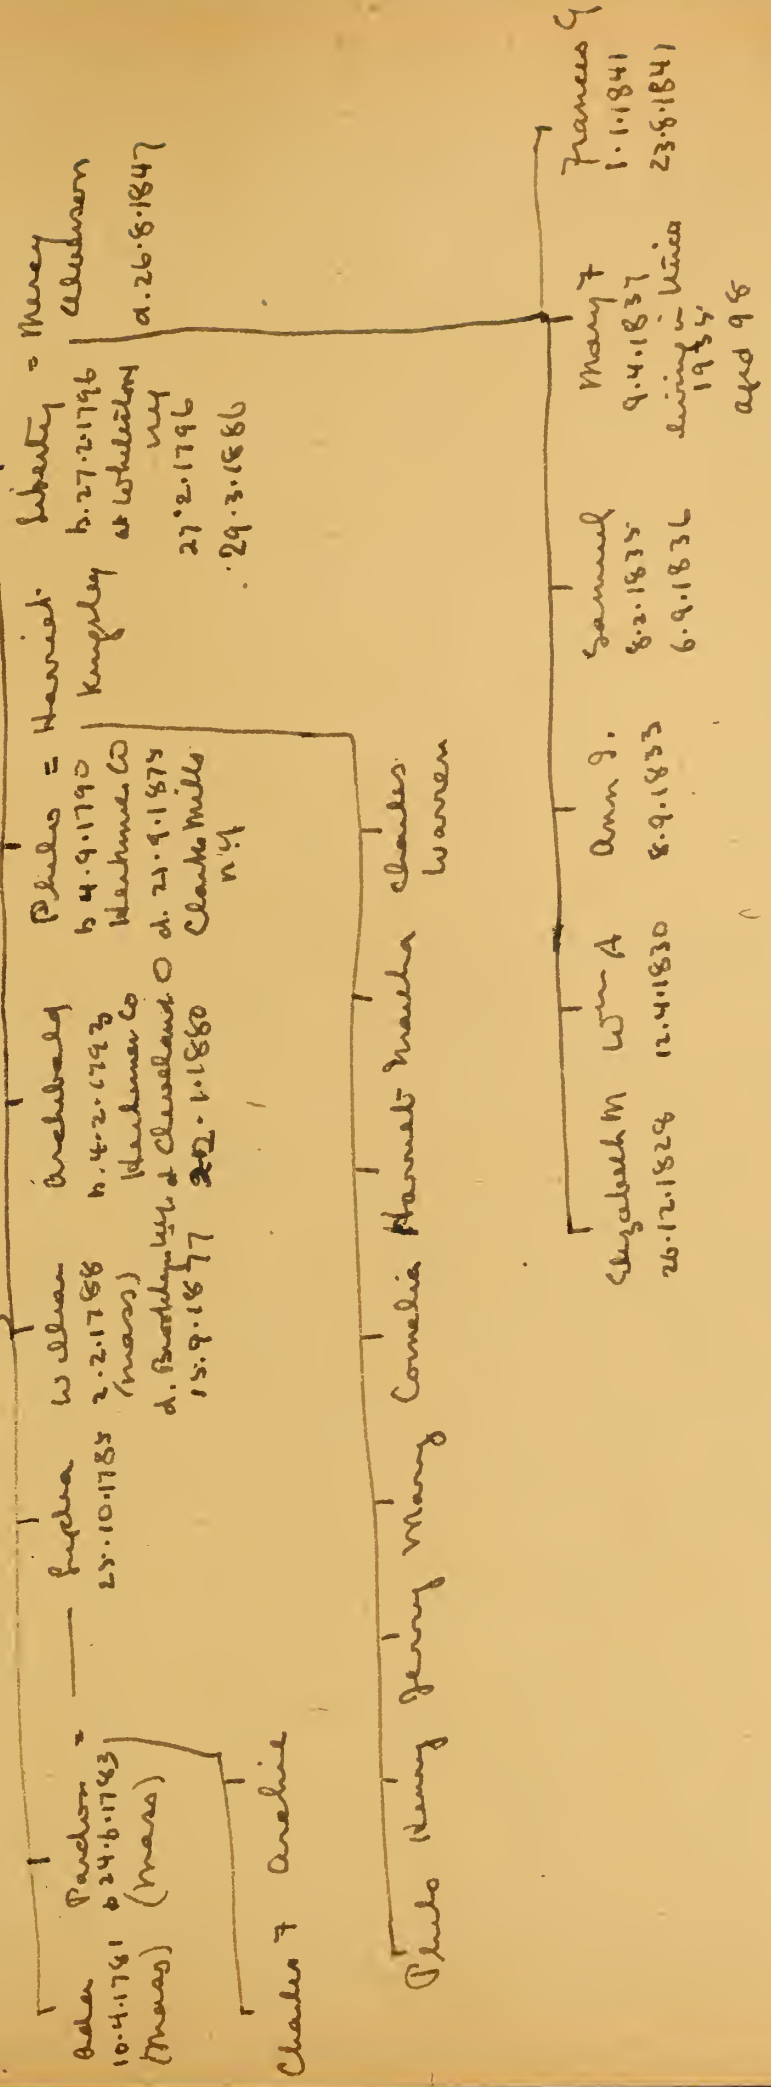 10.4.1781
(Mass)
Pardon =
b 24.6.1783
(Mass)
25.10.1785
William
2.2.1788
(Mass)
d. Brooklyn
15.9.1877
Archibald
b. 4.2.1793
Herkimer Co
d Cleveland O
1.1880
Philo = Harriet
Kingsley
b 4.9.1790
Herkimer Co
d. 21.9.1875
Clarks Mills
N.Y
Liberty = Mercy
b. 27.2.1796
at
NY
27.2.1796
29.3.1886
d. 26.8.1847
Charles F Archie
Philo Henry Jenny Mary Cornelia Harriet Martha Charles
Warren
Elizabeth M
26.12.1828
Wm A
12.4.1830
Ann J.
8.9.1833
Samuel
8.2.1835
6.9.1836
Mary F
9.4.1837
living in Utica
1935
aged 98
Frances G
1.1.1841
23.8.1841